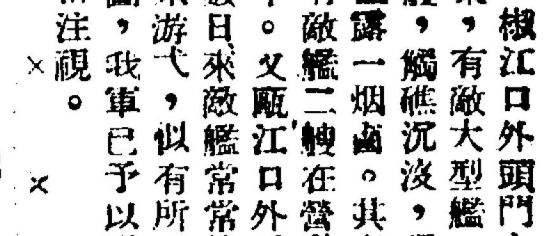 椒江口外頭門
，有敵大型艦
，觸礁沉沒，
露一烟囪。其
敵艦二艘在營
。又甌江口外
日來敵艦常常
游弋，似有所
，我軍已予以
注視。